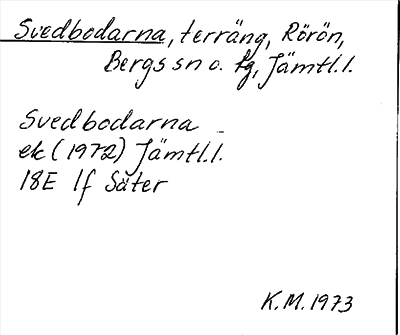 Svedbodarna, terräng, Rörön,
Bergs sn o. tg, Jämtl.l.
Svedbodarna
ek (1972) Jämtl.l.
18E 1f Säter
K.M. 1973